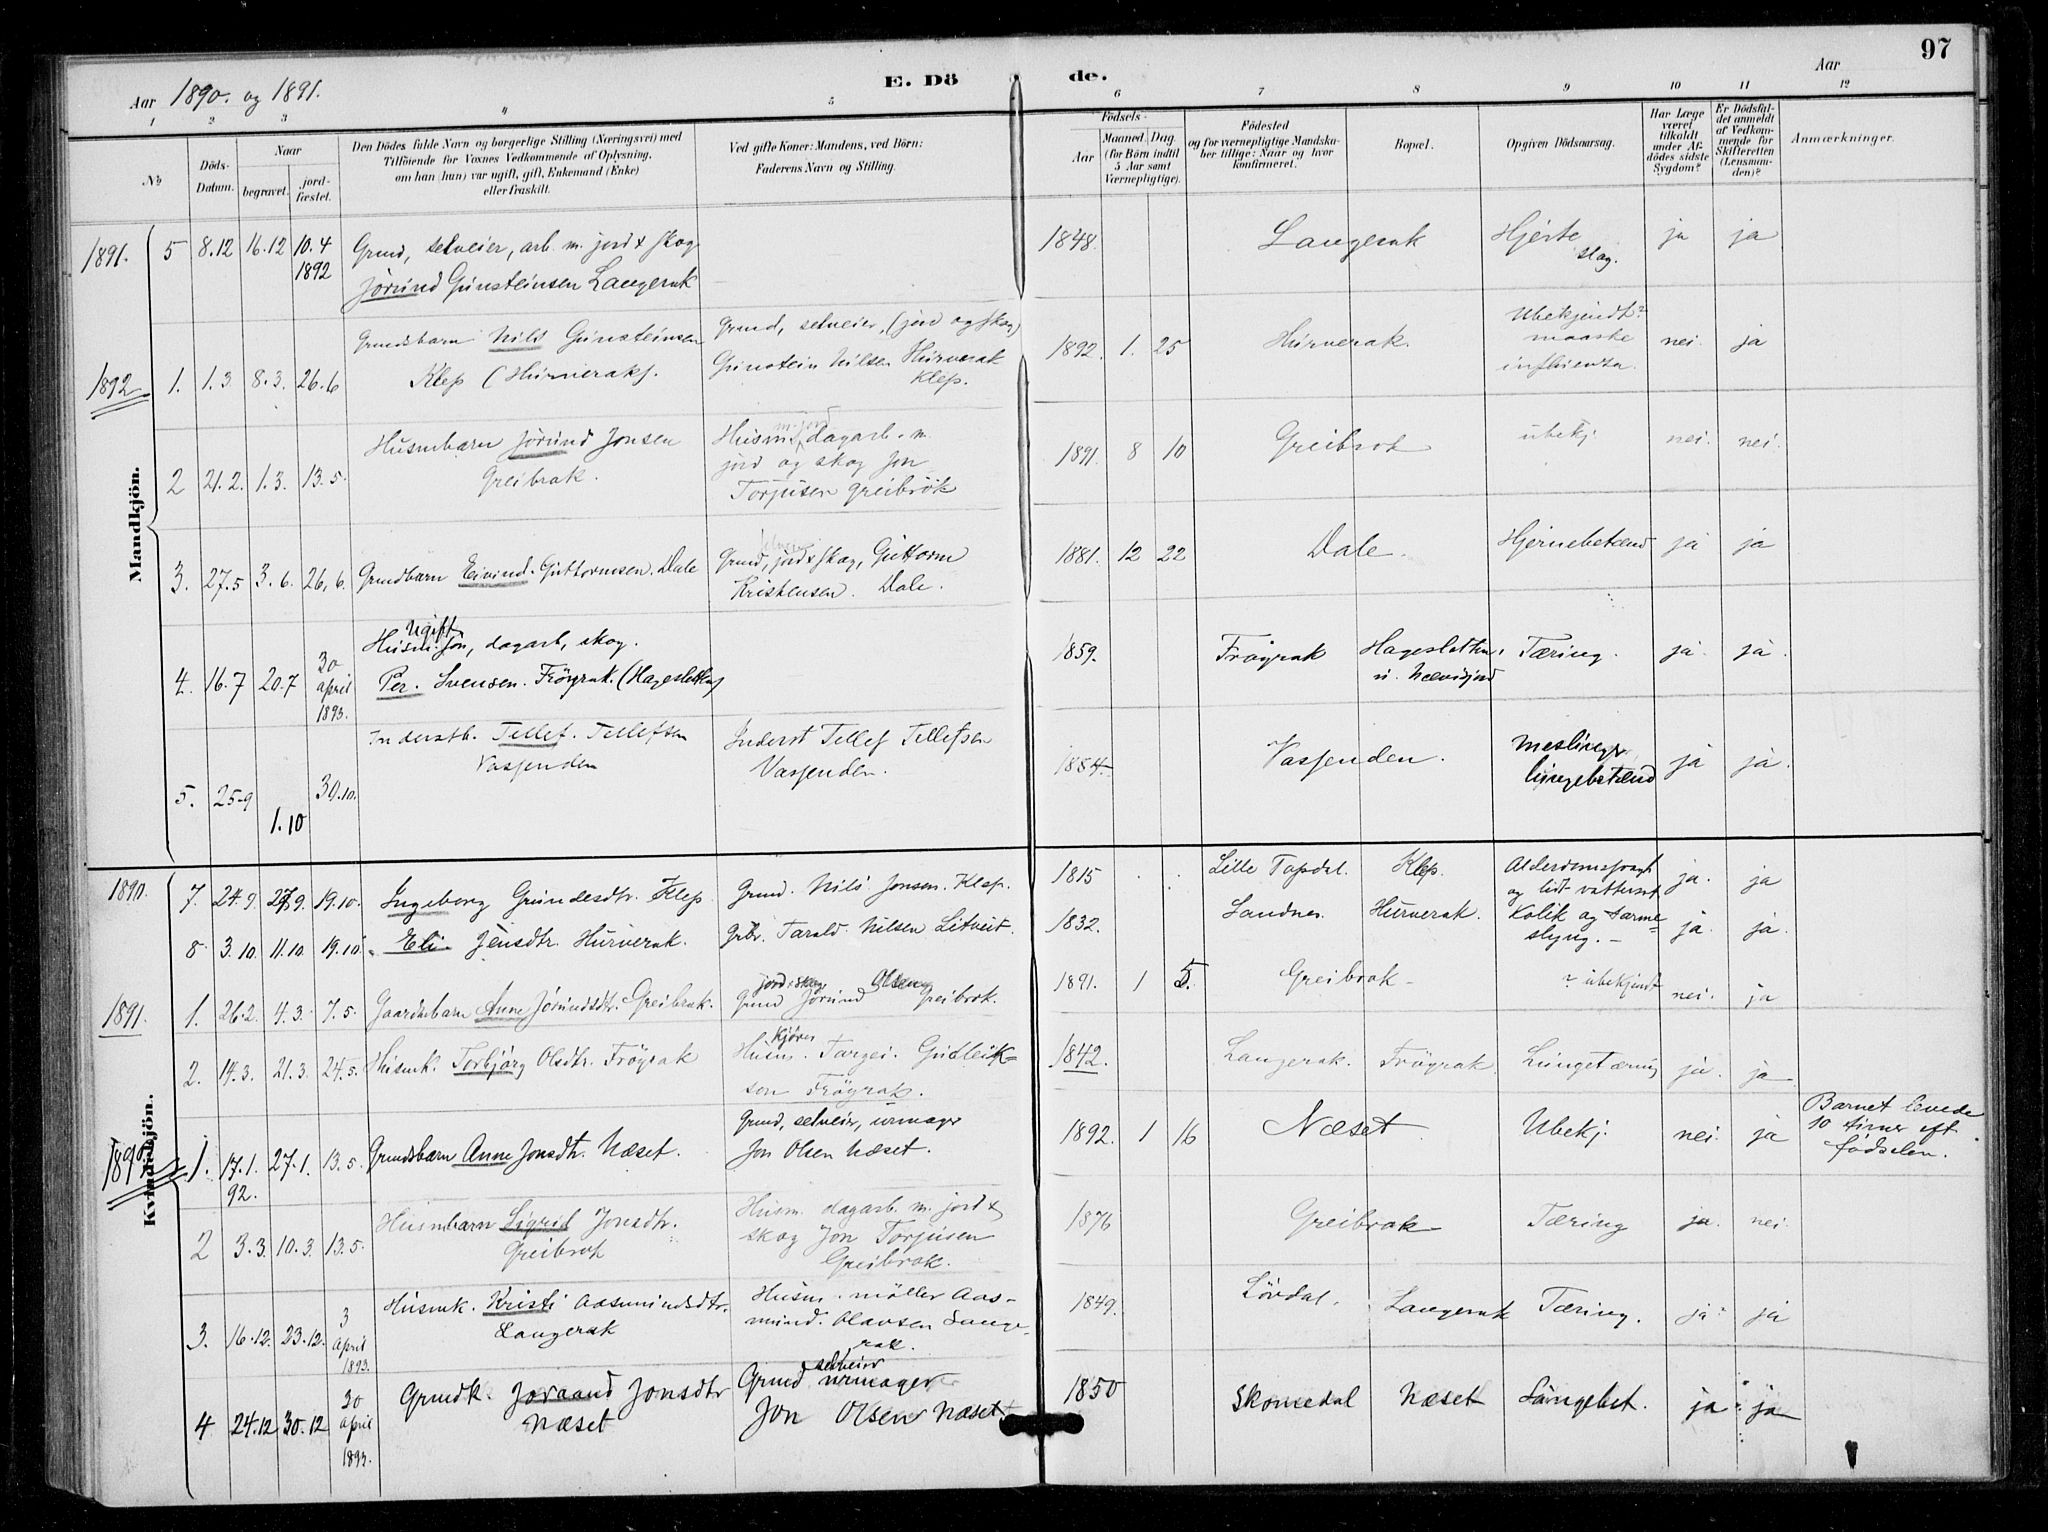 97
Aar 1890. og 1891.
E. Döde.
Aar
1 2 3 4 5 6 7 8 9 10 11 12
No
Döds-Datum.
Naar
begravet. jord-fæstet.
Den Dödes fulde Navn og borgerlige Stilling (Næringsvei) med
Tilföiende for Voxnes Vedkommende af Oplysning,
om han (hun) var ugift, gift, Enkemand (Enke)
eller fraskilt.
Ved gifte Koner: Mandens, ved Börn:
Faderens Navn og Stilling.
Födsels-
Aar
Maaned. Dag.
(for Börn indtil
5 Aar samt
Værnepligtige).
Födested
og for værnepligtige Mandska-
ber tillige: Naar og hvor
konfirmeret.
Bopæl.
Opgiven Dödsaarsag.
Har Læge
været
tilkaldt
under Af-
dödes sidste
Sygdom?
Er Dödsfal-
det anmeldt
af Vedkom-
mende for
Skifteretten
(Lensman-
den)?
Anmærkninger.
Mandkjön.
1891. 5 8.12 16.12 10.4 1892
Grund, selveier, arb. m. jord & skog
Jørund Gunsteinsen Langerak
1848. Langerak Hjerteslag. ja ja
1892 1. 1.3. 8.3. 26.6
Grundsbarn Nils Gunsteinsen
Klep (Hurverak).
Grund, selveier, (jord og skog)
Gunstein Nilsen Hurverak
Klep.
1892. 1. 25 Hurverak. Ubekjendt?
maaske
influenza. nei. ja
2 21.2. 1.3. 13.5.
Husmbarn Jørund Jonsen
Greibrok.
Husm. m. jord dagarb. m.
jord og skog Jon
Torjusen Greibrok
1891. 8 10 Greibrok ubekj. nei. nei.
3. 27.5 3.6. 26.6.
Grundbarn Eivind Guttormsen. Dale
Grund, selveier jord & skog, Guttorm
Kristensen. Dale.
1881. 12 22 Dale. Hjernebetænd ja ja
4. 16.7 20.7 30 april 1893.
Ugift
Husm. søn, dagarb, skog.
Per. Svensen. Frøyrak. (Hagesletten)
1859. Frøyrak Hagesletten Tæring. ja. ja.
5. 25.9 1.10 30.10.
Inderstb. Tellef. Tellefsen
Vasjenden
Inderst Tellef Tellefsen
Vasjenden.
1884. Vasjenden. Meslinger,
lungebetænd ja ja.
Kvindekjön.
1890. 7. 24.9. 27.9. 19.10. Ingeborg Grundesdtr. Klep Grund. Nils Jonsen. Klep.
1815 Lille Topdal. Klep. Alderdomssvagh
og lidt vattersot ja. ja
8 3.10. 11.10. 19.10. Eli Jensdtr. Hurverak. Grbr. Tarald Nilsen Litveit.
1832. Landnes. Hurverak. Kolik og tarme-
slyng. ja. ja.
1891. 1. 26.2. 4.3. 7.5. Gaardmbarn Anne Jørundsdtr. Greibrok.
jord & skog Olsen
Grund Jørund Greibrok.
1891. 1 5. Greibrok ? ubekjendt nei. ja
2. 14.3. 21.3. 24.5. Husmk. Torbjørg Olsdtr. Frøyrak
Kjører
Husm. Targei. Gudleik-
son Frøyrak.
1842. Langerak. Frøyrak Lungetæring ja. ja
1892 1. 17.1.92. 27.1. 13.5. Grundsbarn Anne Jonsdtr. Næset.
Grund, selveier, urmager
Jon Olsen Næset.
1892. 1 16 Næset. Ubekj. nei. ja
Barnet levede
10 timer eft
fødselen.
2 3.3. 10.3. 13.5.
Husmbarn Sigrid Jonsdtr.
Greibrok
Husm. dagarb. m. jord &
skog Jon Torjusen
Greibrok.
1876 Greibrok Tæring ja. nei.
3. 16.12. 23.12. 3 april 1893.
Husmk. Kristi Aasmundsdtr.
Langerak
Husm. møller Aas-
mund. Olavsen Lange-
rak.
1849. Løvdal. Langerak Tæring. ja. ja
4 24.12 30.12 30 april 1893.
Grundk. Joraand Jonsdtr
Næset
Grund selveier urmager
Jon Olsen Næset
1850 Skomedal Næset Lungebet. ja ja